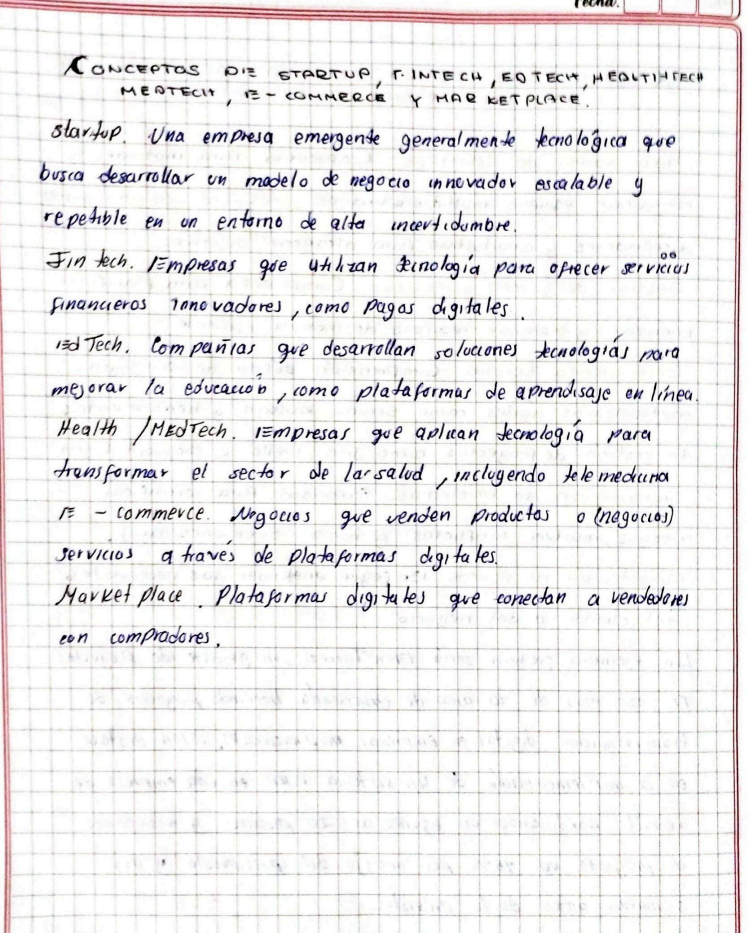 Fecha.
CONCEPTOS DE STARTUP, FINTECH, EDTECH, HEALTHTECH
MEDTECH, E-COMMERCE Y MARKETPLACE.
startup. Una empresa emergente generalmente tecnológica que
busca desarrollar un modelo de negocio innovador escalable y
repetible en un entorno de alta incertidumbre.
Fintech. Empresas que utilizan tecnología para ofrecer servicios
financieros innovadores, como pagos digitales.
Ed Tech. Compañias que desarrollan soluciones tecnologiás para
mejorar la educación, como plataformas de aprendisaje en línea.
Health /MEdTech. Empresas que aplican tecnología para
transformar el sector de la salud, incluyendo telemedicina
E - commerce. Negocios que venden productos o (negocios)
servicios a través de plataformas digitales.
Market place. Plataformas digitales que conectan a vendedores
con compradores.